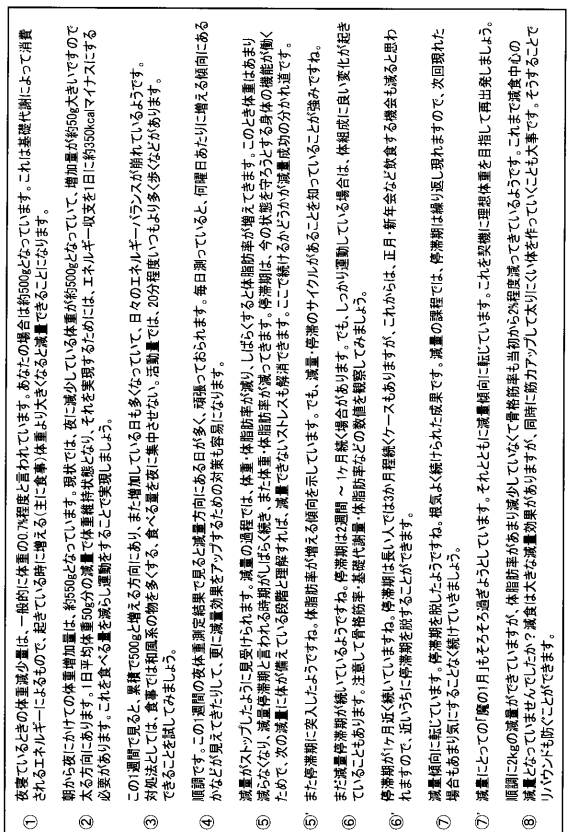 ① 夜寝ているときの体重減少量は、一般的に体重の0.7%程度と言われています。あなたの場合は約500gとなっています。これは基礎代謝によって消費
されるエネルギーによるもので、起きている時に増える(主に食事)体重より大きくなると減量できることになります。
② 朝から夜にかけての体重増加量は、約550gとなっています。現状では、夜に減少している体重が約500gとなっていて、増加量が約50g大きいですので
太る方向にあります。1日平均体重50g分の減量で体重維持状態となり、それを実現するためには、エネルギー収支を1日に約350kcalマイナスにする
必要があります。これを食べる量を減らし運動をすることで実現しましょう。
③ この1週間で見ると、累積で500gと増える方向にあり、また増加している日も多くなっていて、日々のエネルギーバランスが崩れているようです。
対処法としては、食事では和風系の物を多くする、食べる量を夜に集中させない。活動量では、20分程度いつもより多く歩くなどがあります。
できることを試してみましょう。
④ 順調です。この1週間の夜体重測定結果で見ると減量方向にある日が多く、頑張っておられます。毎日測っていると、何曜日あたりに増える傾向にある
かなどが見えてきたりして、更に減量効果をアップするための対策も容易になります。
⑤ 減量がストップしたように見受けられます。減量の過程では、体重・体脂肪率が減り、しばらくすると体脂肪率が増えてきます。このとき体重はあまり
減らなくなり、減量停滞期と言われる時期がしばらく続き、また体重・体脂肪率が減ってきます。停滞期は、今の状態を守ろうとする身体の機能が働く
ためで、次の減量に体が備えている段階と理解すれば、減量できないストレスも解消できます。ここで続けるかどうかが減量成功の分かれ道です。
⑤' また停滞期に突入したようですね。体脂肪率が増える傾向を示しています。でも、減量・停滞のサイクルがあることを知っていることが強みですね。
⑥ まだ減量停滞期が続いているようですね。停滞期は2週間 ~ 1ヶ月続く場合があります。でも、しっかり運動している場合は、体組成に良い変化が起き
ていることもあります。注意して骨格筋率・基礎代謝量・体脂肪率などの数値を観察してみましょう。
⑥' 停滞期が1ヶ月近く続いていますね。停滞期は長い人では3か月程続くケースもありますが、これからは、正月・新年会など飲食する機会も減ると思わ
れますので、近いうちに停滞期を脱することができます。
⑦ 減量傾向に転じています。停滞期を脱したようですね。根気よく続けられた成果です。減量の課程では、停滞期は繰り返し現れますので、次回現れた
場合もあまり気にすることなく続けていきましょう。
⑦' 減量にとっての「魔の1月」もそろそろ過ぎようとしています。それとともに減量傾向に転じています。これを契機に理想体重を目指して再出発しましょう。
⑧ 順調に2kgの減量ができていますが、体脂肪率があまり減少していなくて骨格筋率も当初から2%程度減ってきているようです。これまで減食中心の
減量となっていませんでしたか?減食は大きな減量効果がありますが、同時に筋力アップして太りにくい体を作っていくことも大事です。そうすることで
リバウンドも防ぐことができます。